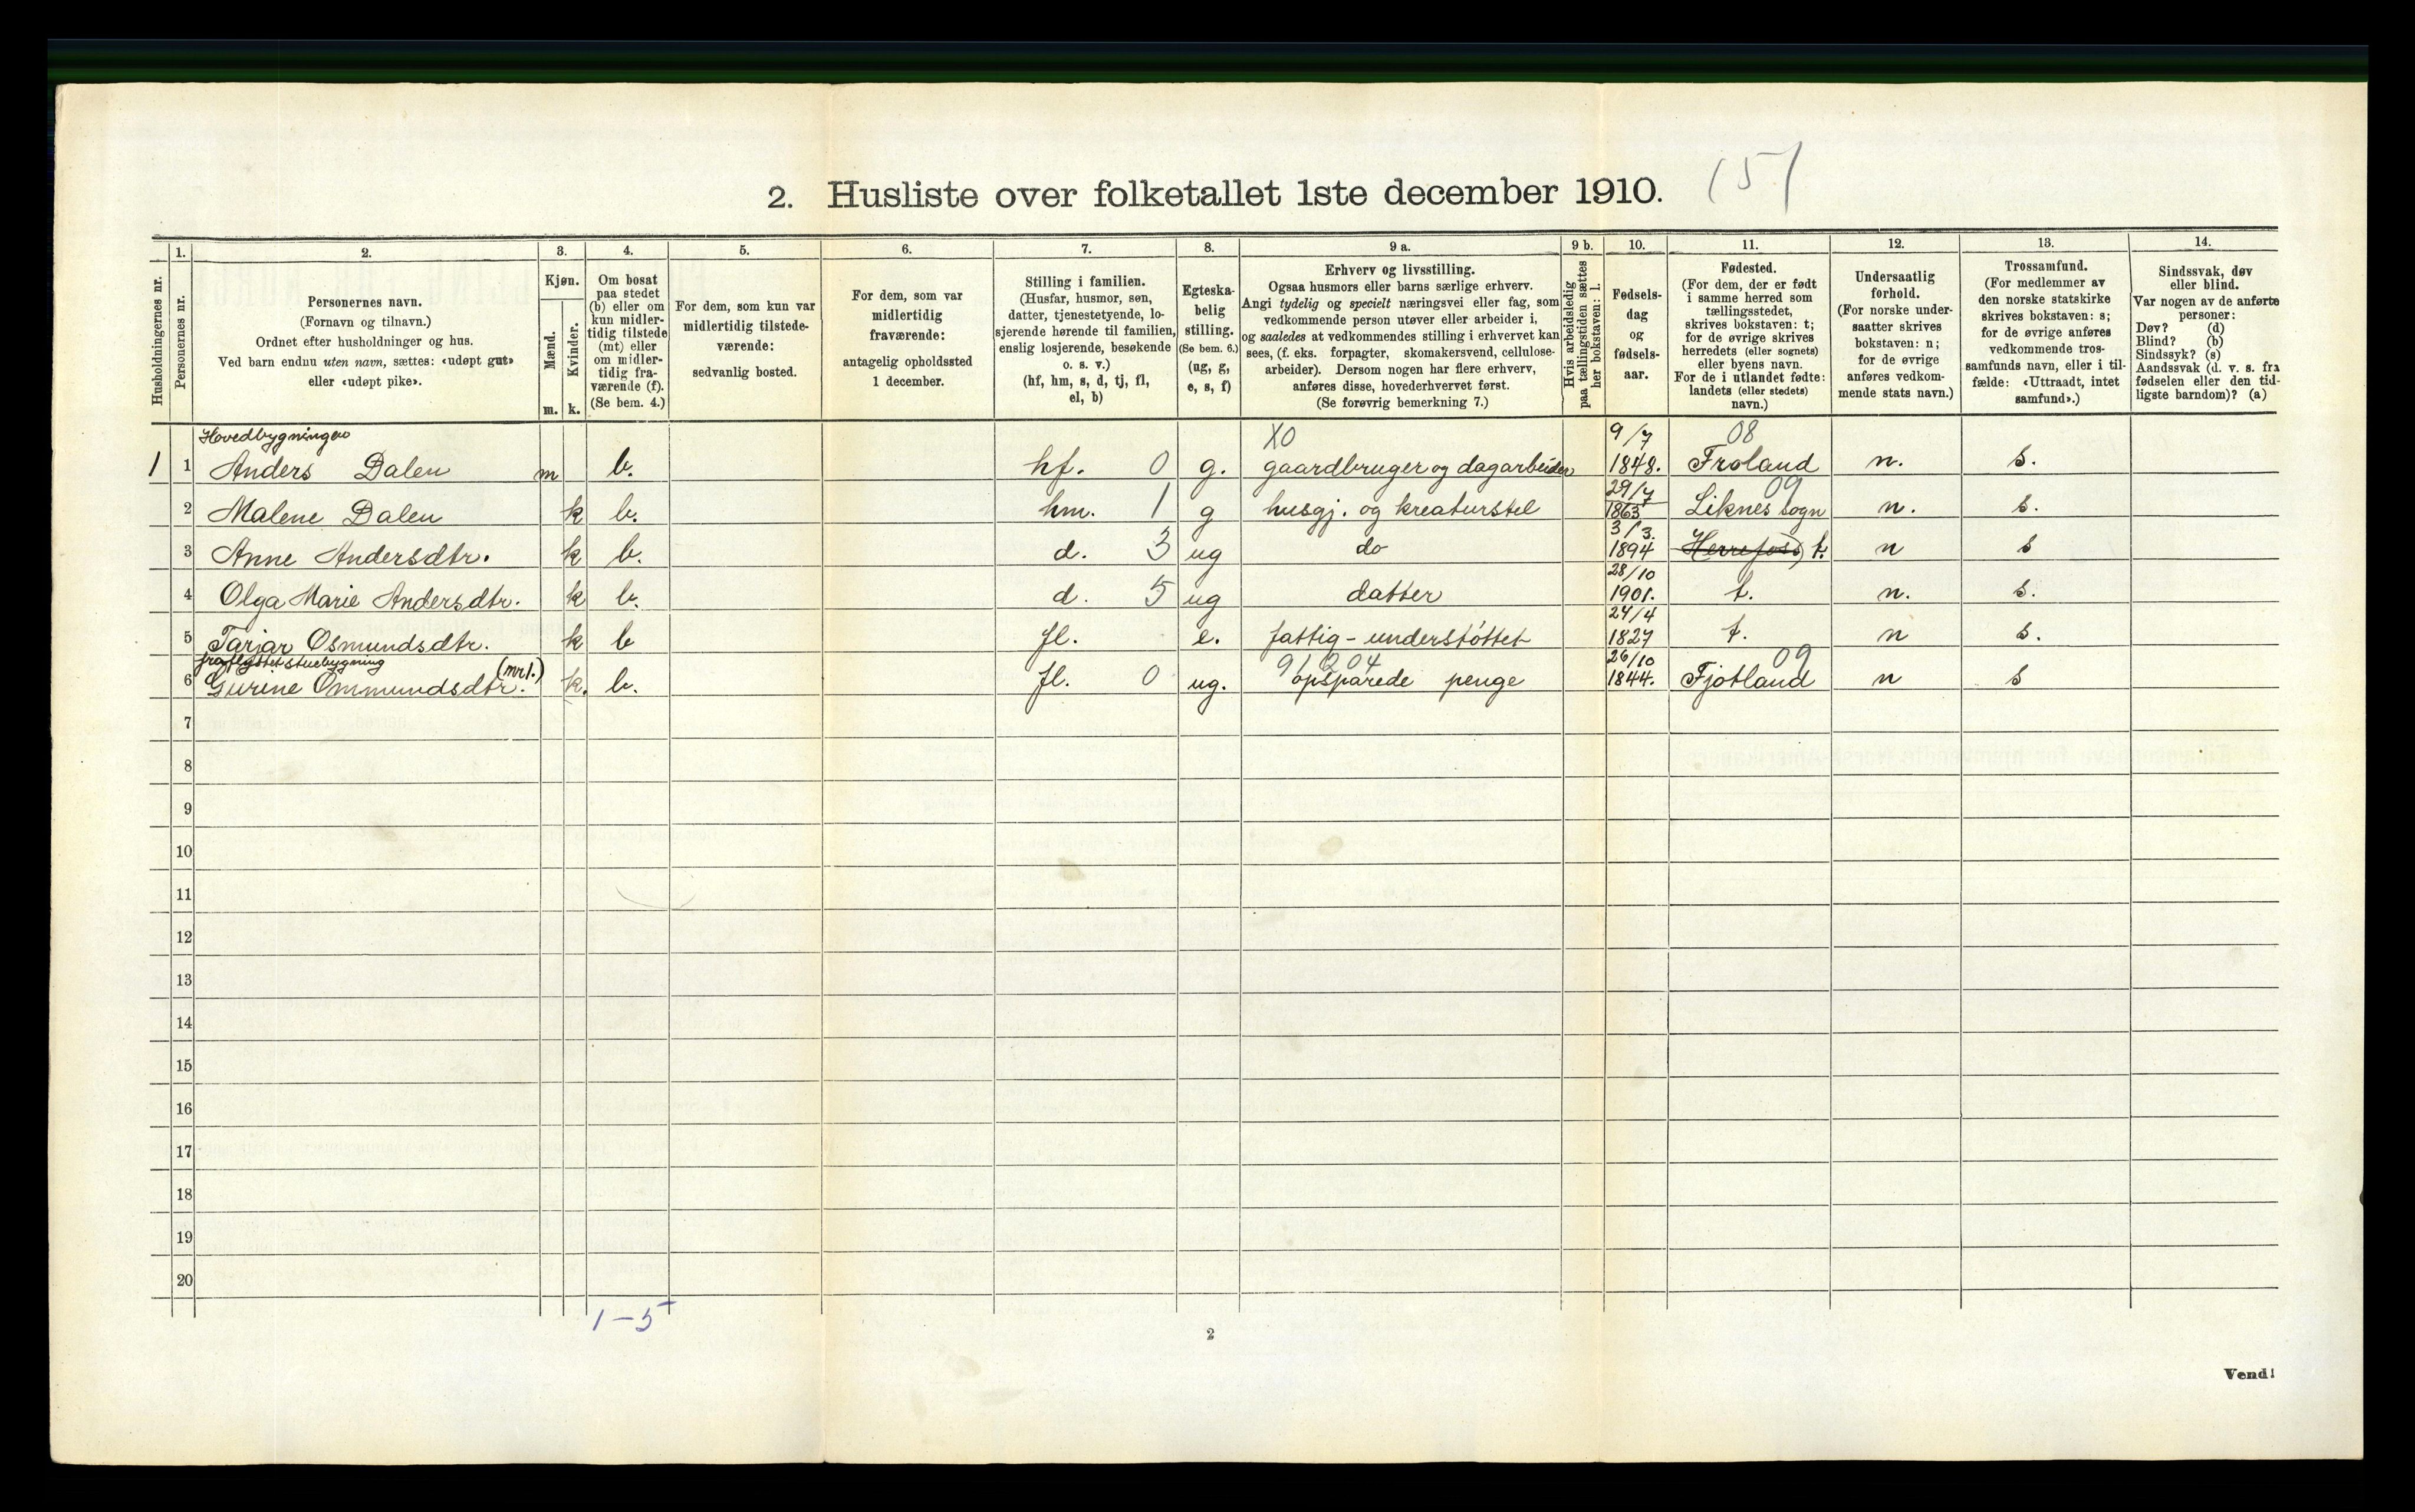 2. Husliste over folketallet 1ste december 1910. 151
Husholdningernes nr.
1.
Personernes nr.
2.
Personernes navn.
(Fornavn og tilnavn.)
Ordnet efter husholdninger og hus.
Ved barn endnu uten navn, sættes: «udøpt gut»
eller «udøpt pike».
3.
Kjøn.
Mænd.
Kvinder.
m. k.
4.
Om bosat
paa stedet
(b) eller om
kun midler-
tidig tilstede
(mt) eller
om midler-
tidig fra-
værende (f).
(Se bem. 4.)
5.
For dem, som kun var
midlertidig tilstede-
værende:
sedvanlig bosted.
6.
For dem, som var
midlertidig
fraværende:
antagelig opholdssted
1 december.
7.
Stilling i familien.
(Husfar, husmor, søn,
datter, tjenestetyende, lo-
sjerende hørende til familien,
enslig losjerende, besøkende
o. s. v.)
(hf, hm, s, d, tj, fl,
el, b)
8.
Egteska-
belig
stilling.
(Se bem. 6.)
(ug, g,
e, s, f)
9 a.
Erhverv og livsstilling.
Ogsaa husmors eller barns særlige erhverv.
Angi tydelig og specielt næringsvei eller fag, som
vedkommende person utøver eller arbeider i,
og saaledes at vedkommendes stilling i erhvervet kan
sees, (f. eks. forpagter, skomakersvend, cellulose-
arbeider). Dersom nogen har flere erhverv,
anføres disse, hovederhvervet først.
(Se forøvrig bemerkning 7.)
9 b.
Hvis arbeidsledig
paa tællingstiden sættes
her bokstaven: l.
10.
Fødsels-
dag
og
fødsels-
aar.
11.
Fødested.
(For dem, der er født
i samme herred som
tællingsstedet,
skrives bokstaven: t;
for de øvrige skrives
herredets (eller sognets)
eller byens navn.
For de i utlandet fødte:
landets (eller stedets)
navn.)
12.
Undersaatlig
forhold.
(For norske under-
saatter skrives
bokstaven: n;
for de øvrige
anføres vedkom-
mende stats navn.)
13.
Trossamfund.
(For medlemmer av
den norske statskirke
skrives bokstaven: s;
for de øvrige anføres
vedkommende tros-
samfunds navn, eller i til-
fælde: «Uttraadt, intet
samfund».)
14.
Sindssvak, døv
eller blind.
Var nogen av de anførte
personer:
Døv? (d)
Blind? (b)
Sindssyk? (s)
Aandssvak (d. v. s. fra
fødselen eller den tid-
ligste barndom)? (a)
Hovedbygningen X0 9/7 08
1 1 Anders Dalen m b. hf. 0 g. gaardbruger og dagarbeider 1848. Froland n. s.
29/7 09
2 Malene Dalen k b. hm. 1 g husgj. og kreaturstel 1863 Liknes sogn n. s.
3/3.
3 Anne Andersdtr. k b. d. 3 ug do 1894 Herrefoss t. n s
28/10
4 Olga Marie Andersdtr. k b. d. 5 ug datter 1901. t. n. s.
24/4
5 Tarjar Osmundsdtr. k b fl. e. fattig-understøttet 1827 t. n s.
fraflyttet stuebygning (mrl.) 91204 26/10 09
6 Gurine Ommundsdtr. k. b. fl. 0 ug. opsparede penge 1844. Fjotland n s
7
8
9
10
11
12
13
14
15
16
17
18
19
20
1-5
2
Vend!